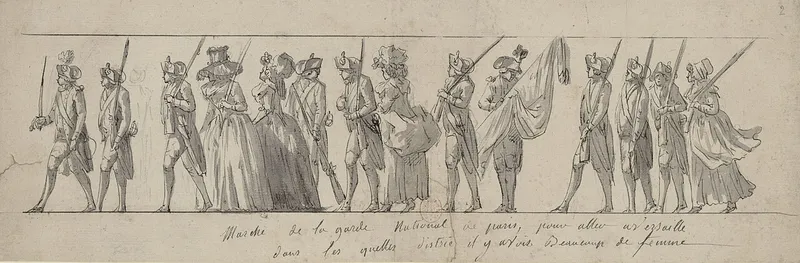 2
Marche de la garde National de paris, pour aller a versaille
dans les quelles district il y avois Beaucoup de femme